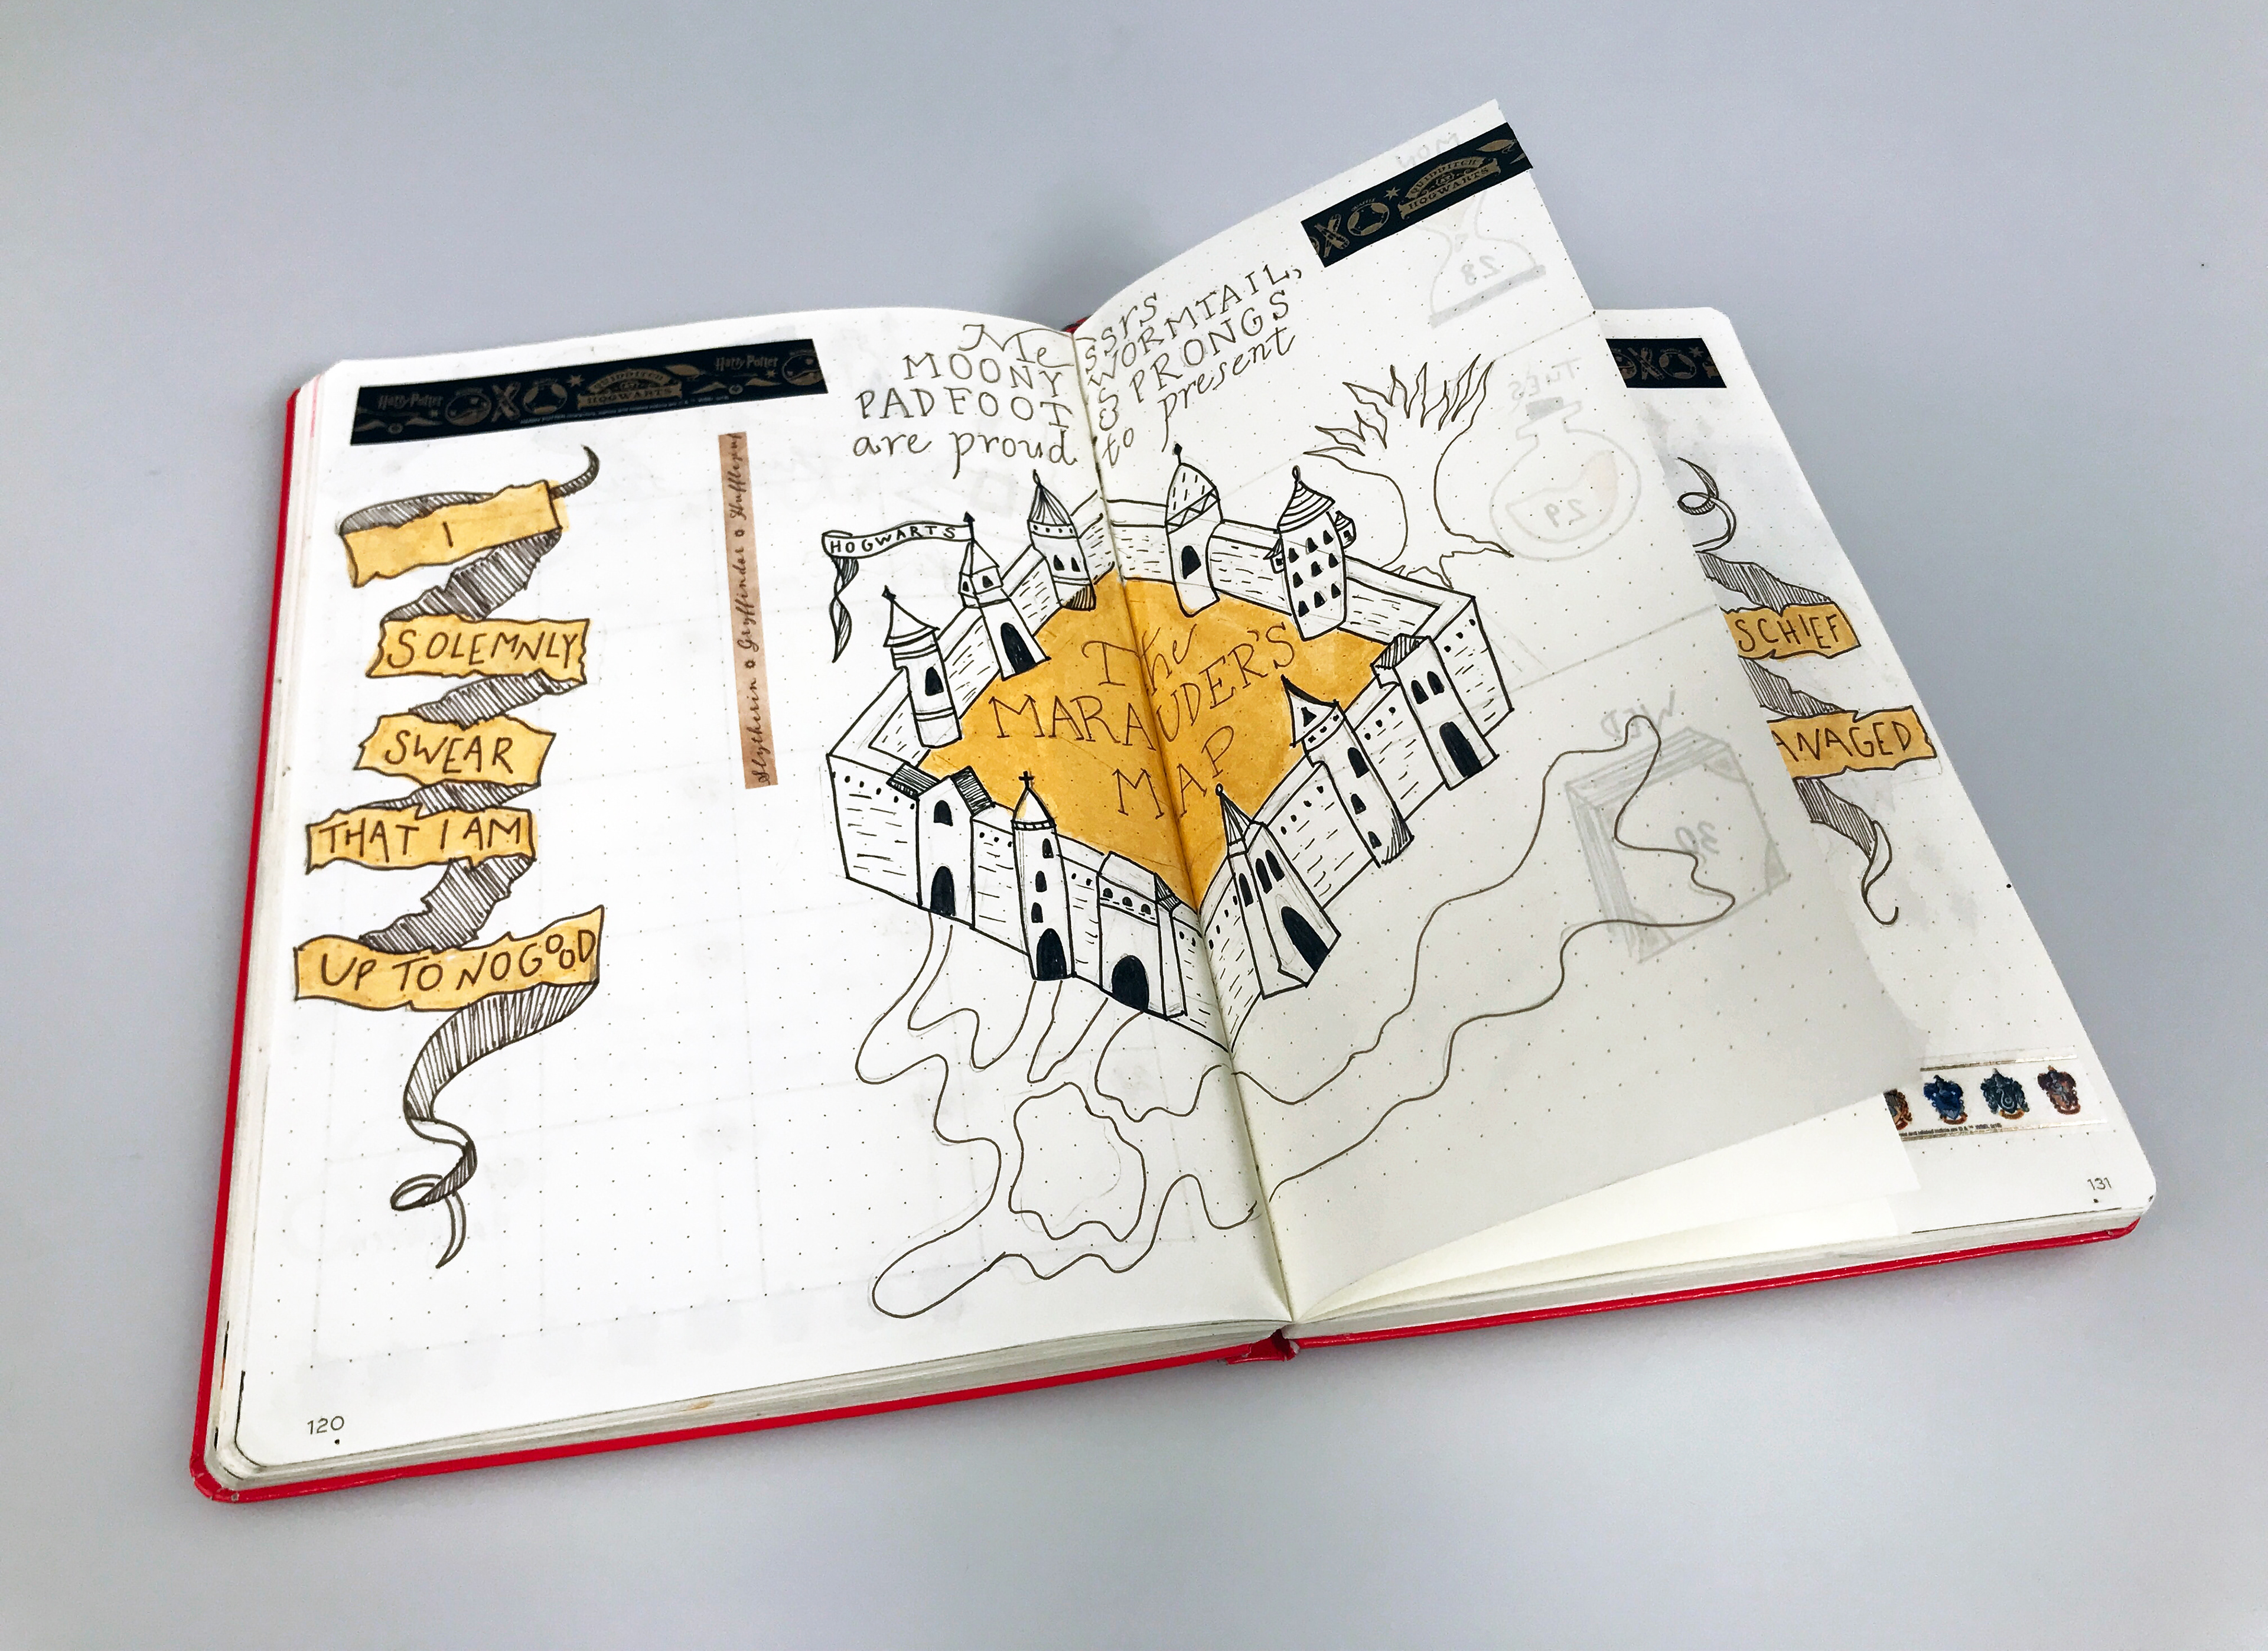 Harry Potter QUIDDITCH HOGWARTS Harry Potter
I
SOLEMNLY
SWEAR
THAT I AM
UP TO NO GOOD
Slytherin Gryffindor Hufflepuff
Messrs
MOONY WORMTAIL,
PADFOOT & PRONGS
are proud to present
HOGWARTS
The
MARAUDER'S
MAP
QUIDDITCH HOGWARTS
MON
28
TUES
29
WED
30
SCHIEF
ANAGED
120
131